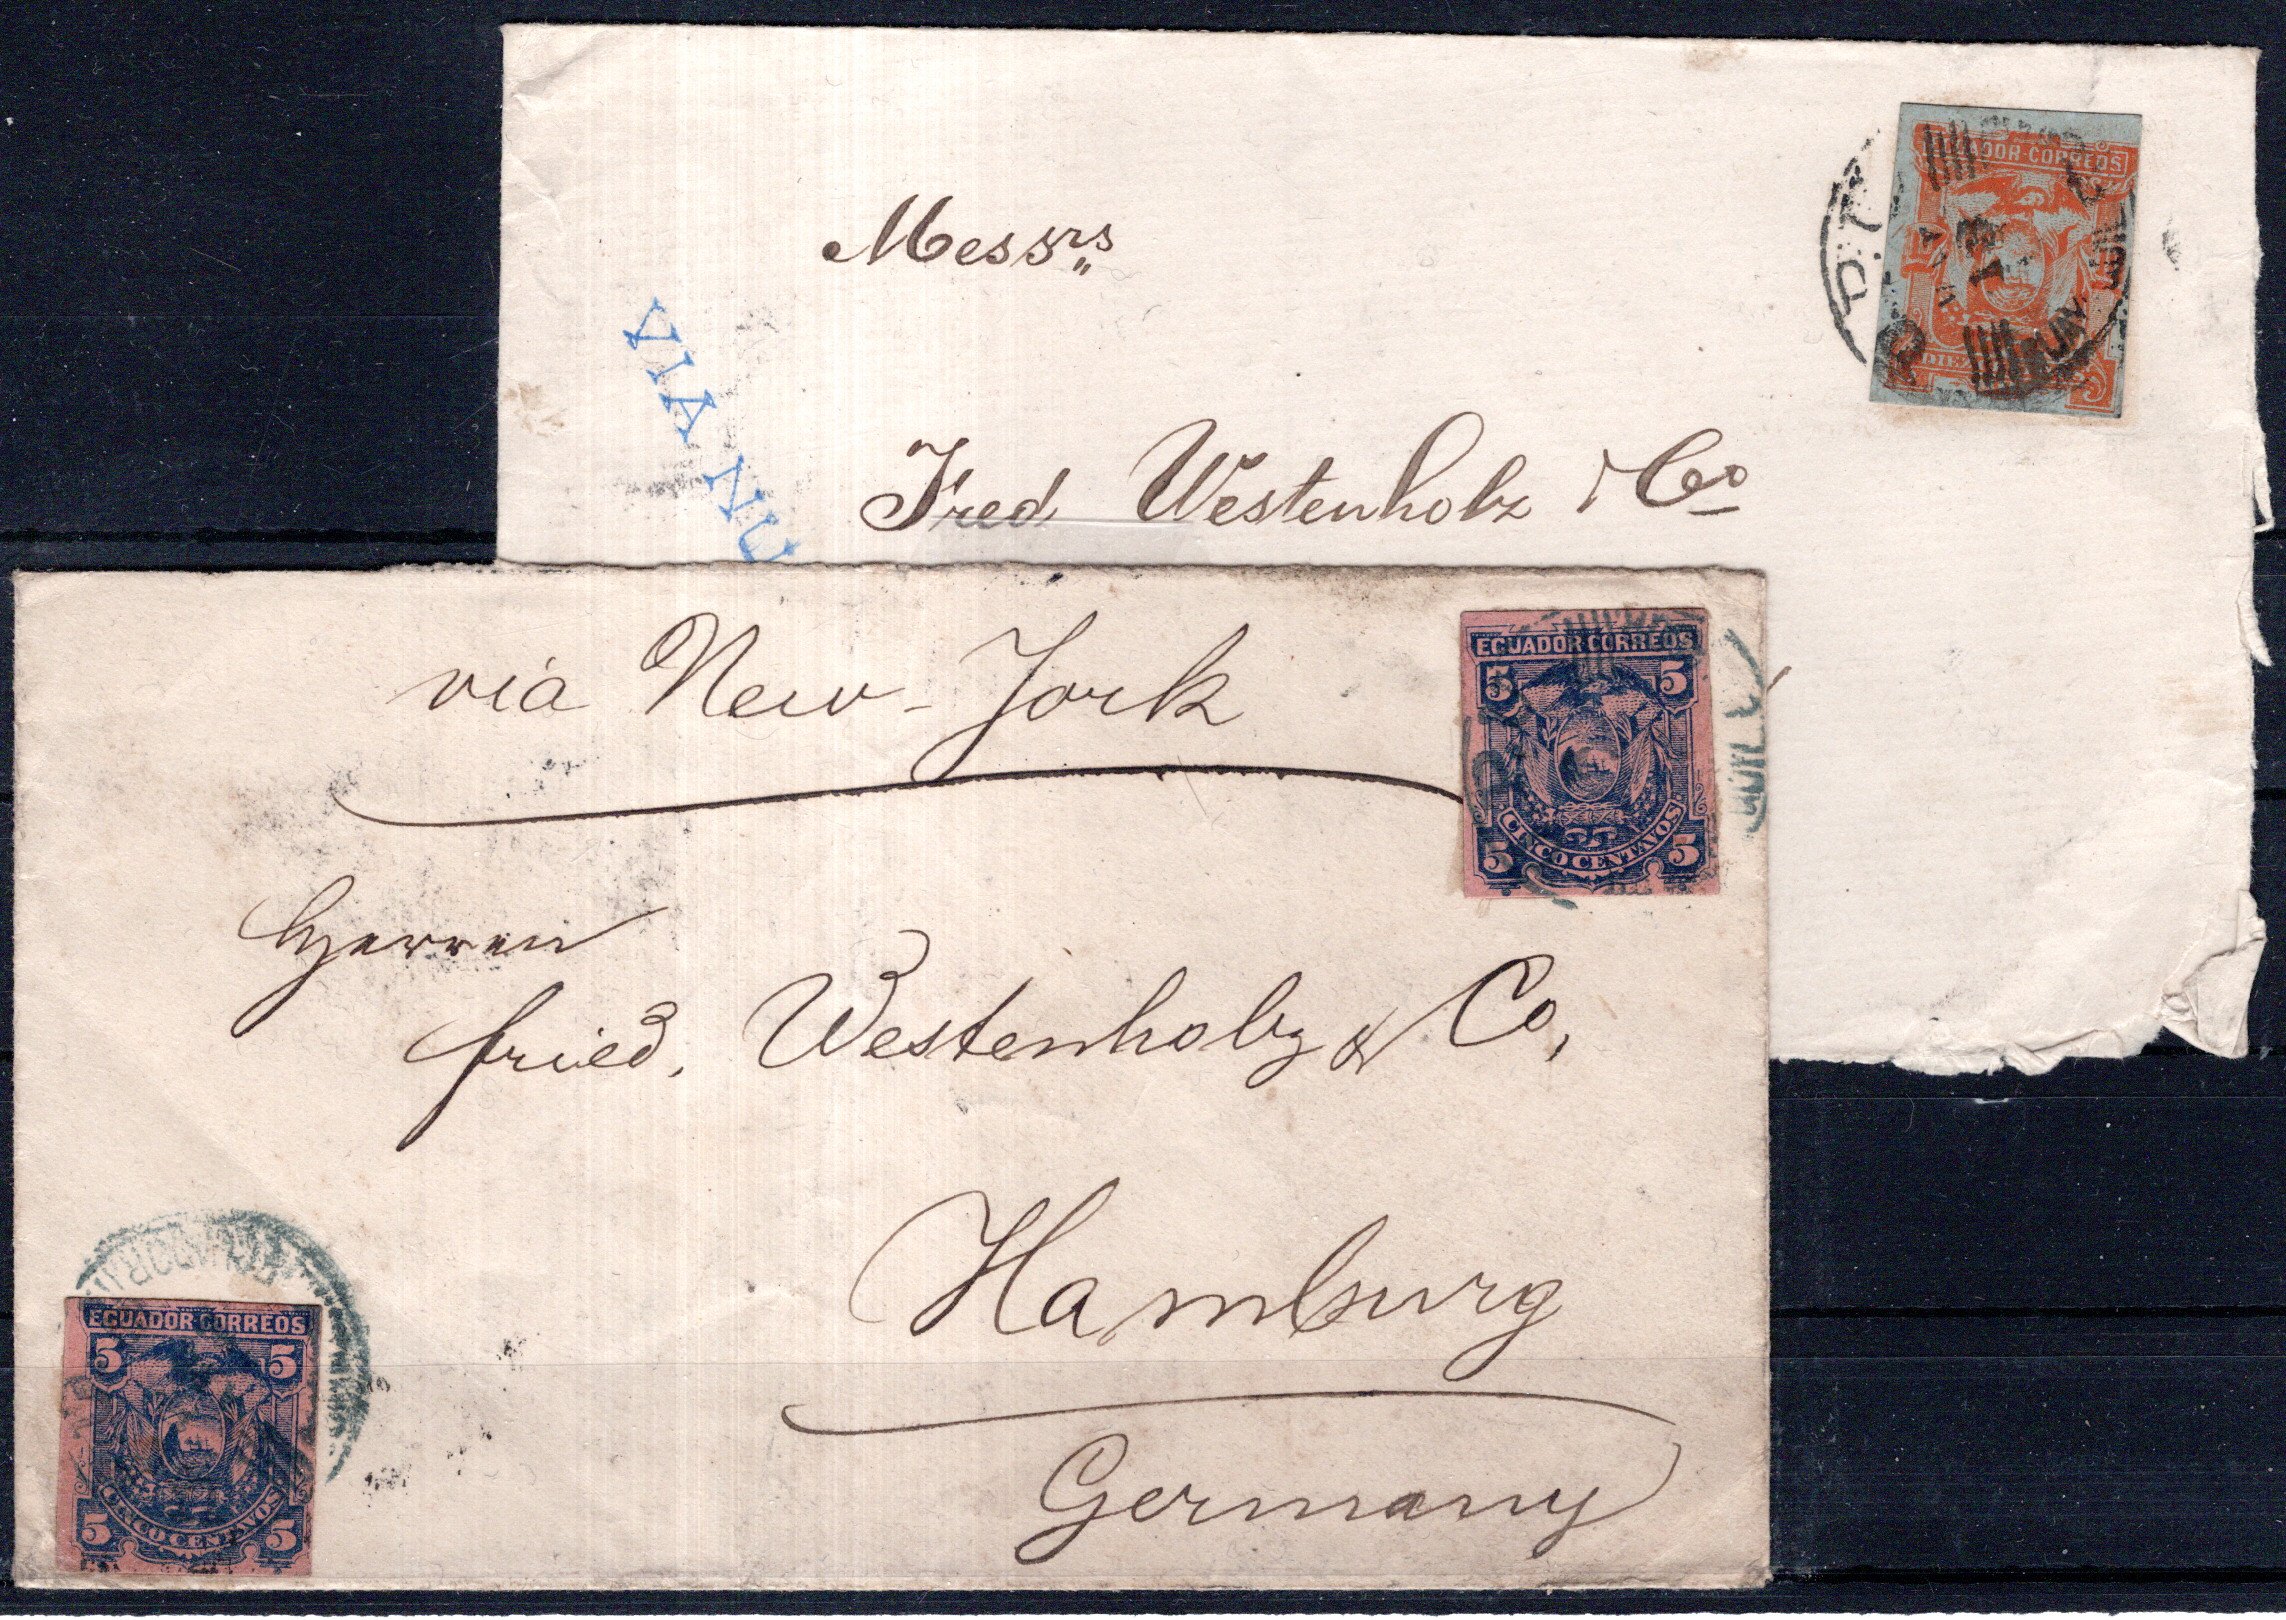 Messrs
Fred Westenholz & Co
VIA NU
ECUADOR CORREOS
13
GUIL
via New-York
Herren
Fried. Westenholz & Co,
Hamburg
Germany
ECUADOR CORREOS
5 5
CINCO CENTAVOS
5 5
GUIL
ECUADOR CORREOS
5 5
CINCO CENTAVOS
5 5